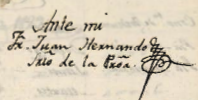 Ante mi
Fr. Juan Hernando
Srio de la Proa.